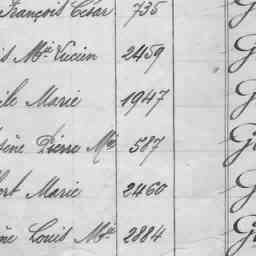 François César 735
is Mie Lucien 2459
ile Marie 1947
sène Pierre Mie 587
ort Marie 2460
ne Louis Mie 2884